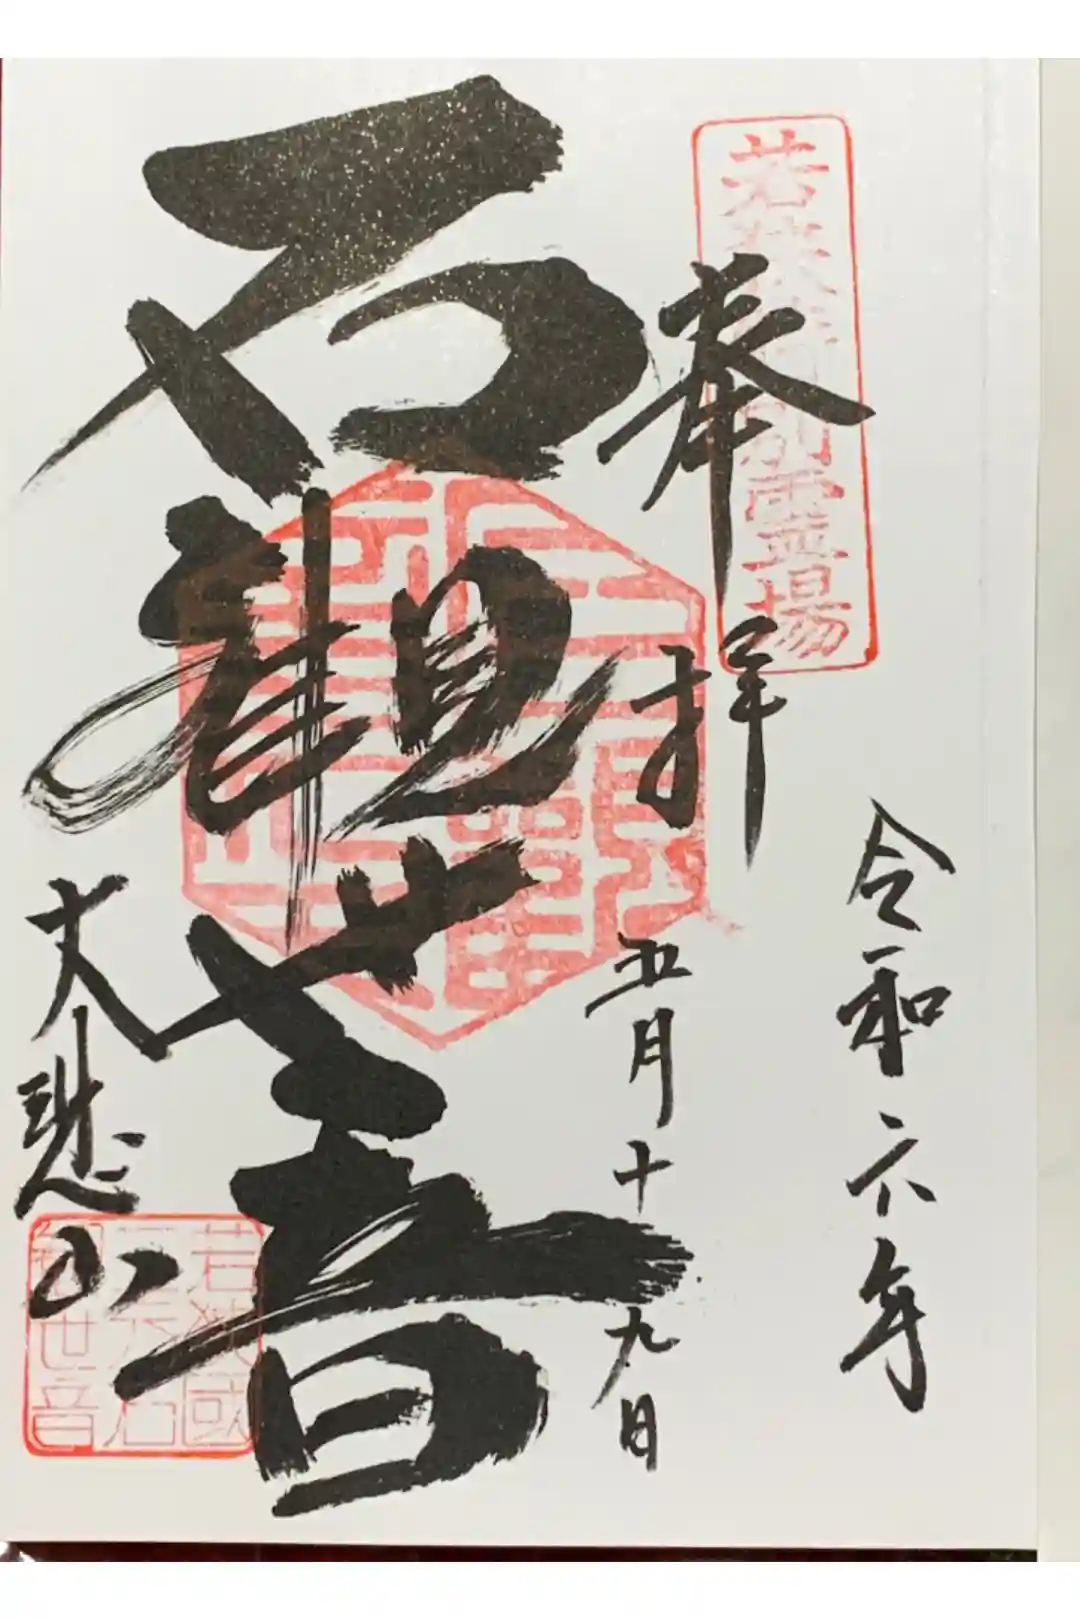 奉拝
令和六年
五月十九日
石観世音
大悲山
若狭 霊場
若狭國
石
観世音